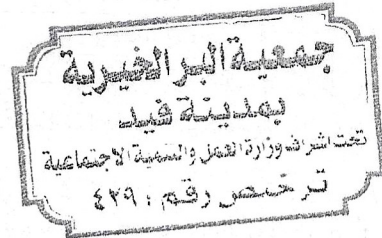 جمعية البر الخيرية
بمدينة فيد
تحت اشراف وزارة العمل والتنمية الاجتماعية
ترخيص رقم : ٤٣٩